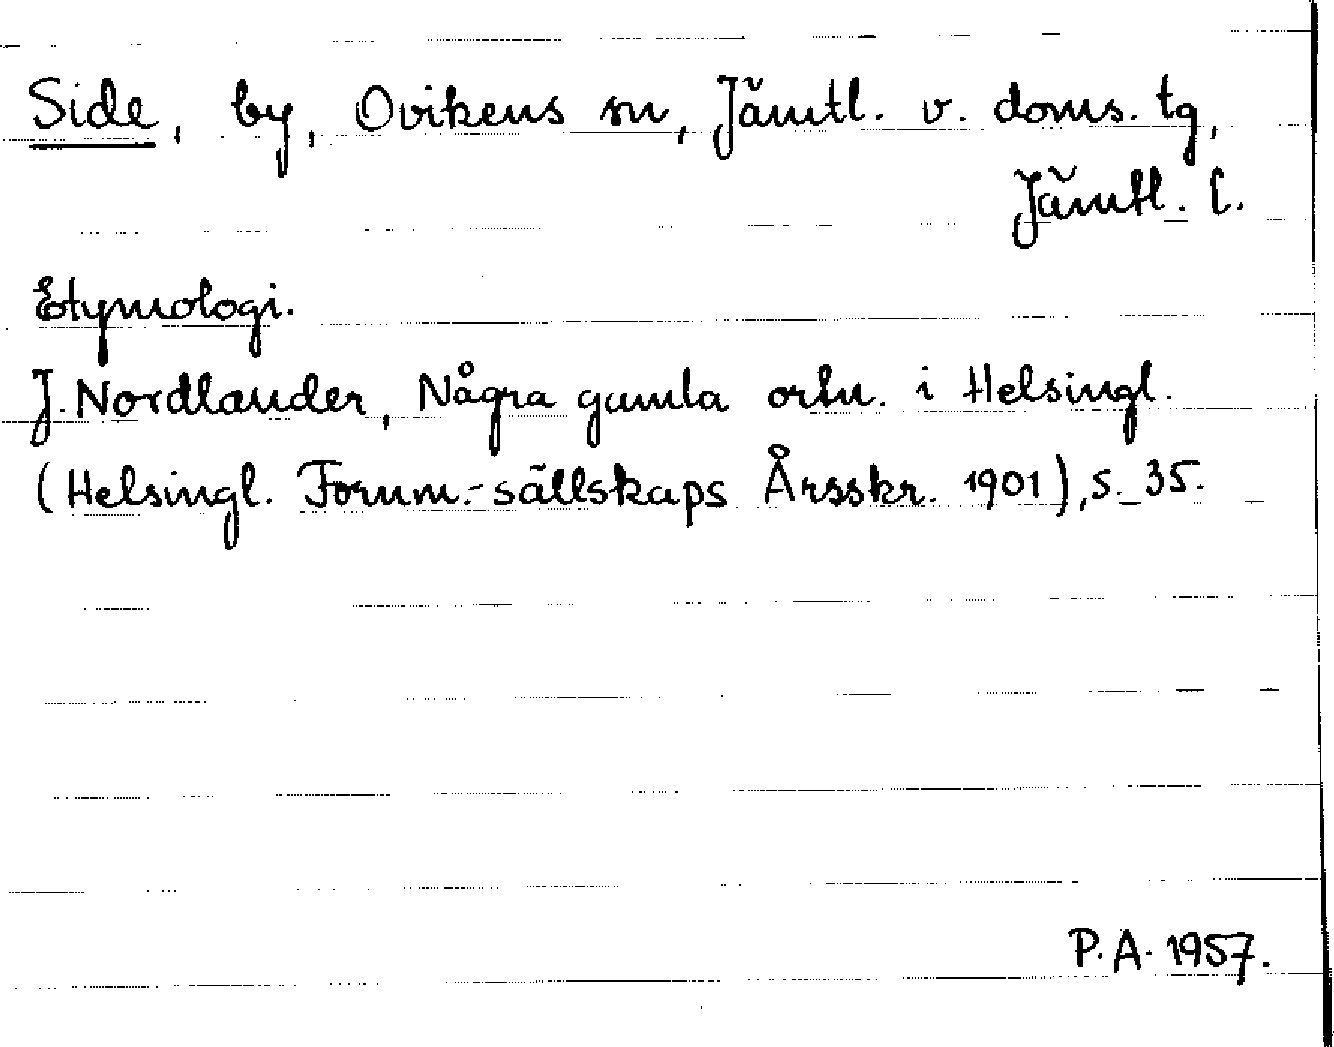 Side, by, Ovikens sn, Jämtl. v. doms. tg,
Jämtl. l.
Etymologi.
J. Nordlander, Några gamla ortn. i Helsingl.
(Helsingl. Fornm.-sällskaps Årsskr. 1901), s. 35.
P. A. 1957.